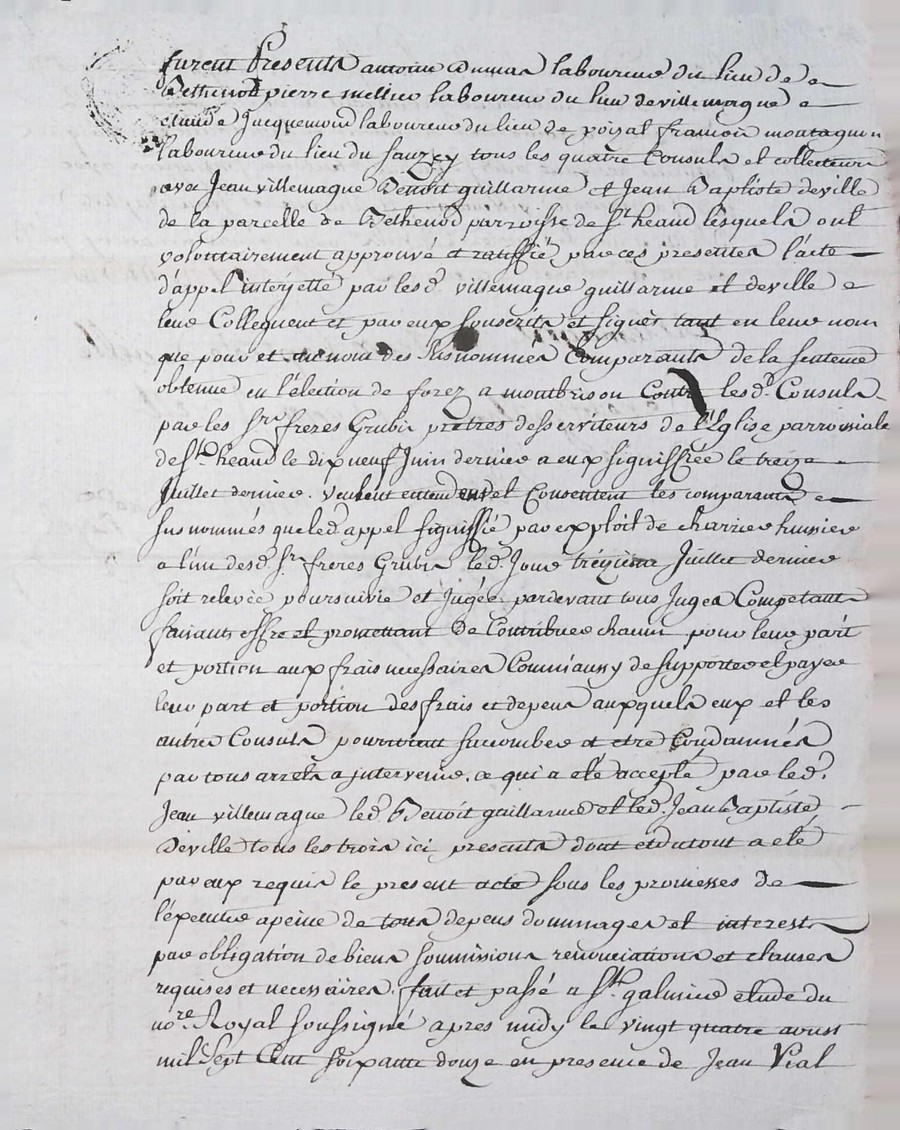 furent Presents antoine Dumas laboureur du lieu de
Bethenod pierre mellier laboureur du lieu de villemagne
claude Jacquemond laboureur du lieu de poisat francois montagnon
laboureur du lieu du Sauzey tous les quatre Consuls et collecteurs
avec Jean villemagne Benoit guillarme et Jean Baptiste deville
de la parcelle de Bethenod parroisse de St heand lesquels ont
volontairement approuvé et ratiffié par ces presentes l'acte
d'appel interjetté par les d. villemagne guillarme et deville
leur Collequent et par eux souscrits et signés tant en leur nom
que pour et au nom des susnommés Comparants de la sentence
obtenue en l'élection de forez a montbrison Contre les d. Consuls
par les srs freres Grubis pretres desserviteurs de l'Eglise parroissiale
de St heand le dix neuf Juin dernier a eux signiffiée le treize
Juillet dernier. veulent entendent et Consentent les comparants
sus nommés que led. appel signiffié par exploit de charrier huissier
a l'un desd. srs freres Grubis led. Jour treizieme Juillet dernier
soit relevée poursuivie et Jugée pardevant tous Juges Competants
faisants offre et promettant de Contribuer chacun pour leur part
et portion aux frais necessaires Comm'aussy de supporter et payer
leur part et portion des frais et depens auxquels eux et les
autres Consuls pourroient sucomber et etre Condamnés
par tous arrets a intervenir. ce qui a eté accepté par led.
Jean villemagne led. Benoit guillarme et led. Jean Baptiste
Deville tous les trois ici presents dont et du tout a eté
par eux requis le present acte sous les promesses de
l'executer a peine de tous depens dommages et interests
par obligation de biens soumissions renonciations et clauses
requises et necessaires. fait et passé a St galmier etude du
nore Royal soussigné apres midy le vingt quatre aoust
mil Sept Cent soixante douze en presence de Jean Vial